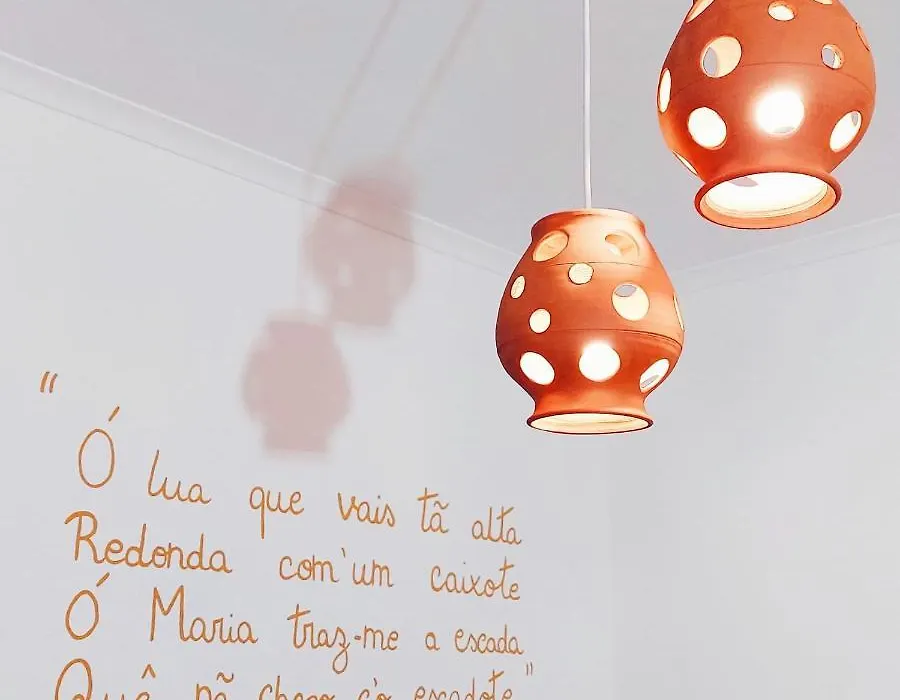 "
Ó lua que vais tã alta
Redonda com'um caixote
Ó Maria traz-me a escada
Quê nã chego c'o escadote"